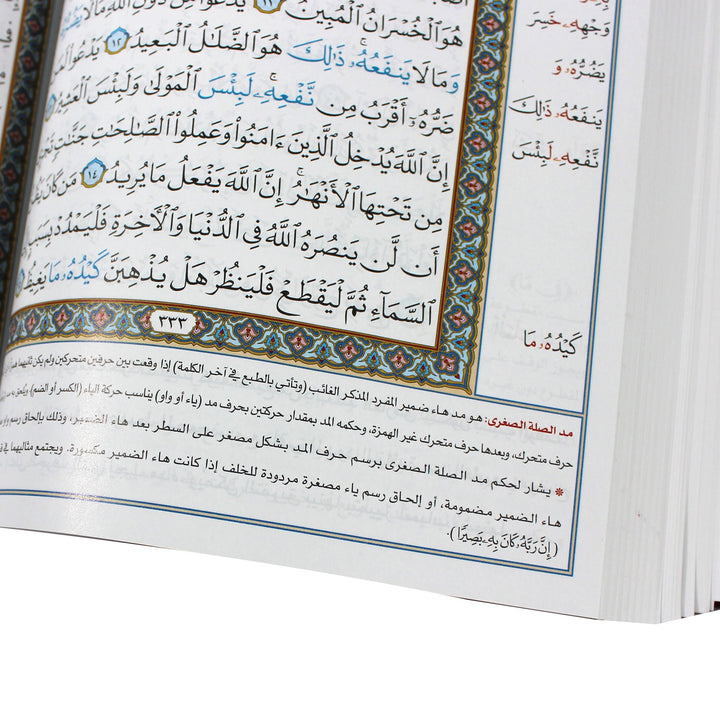 هُوَ ٱلْخُسْرَانُ ٱلْمُبِينُ ١١ يَدْعُوا۟ مِن دُونِ ٱللَّهِ مَا لَا يَضُرُّهُۥ
وَمَا لَا يَنفَعُهُۥ ۚ ذَٰلِكَ هُوَ ٱلضَّلَٰلُ ٱلْبَعِيدُ ١٢ يَدْعُوا۟
ضَرُّهُۥٓ أَقْرَبُ مِن نَّفْعِهِۦ ۚ لَبِئْسَ ٱلْمَوْلَىٰ وَلَبِئْسَ ٱلْعَشِيرُ
إِنَّ ٱللَّهَ يُدْخِلُ ٱلَّذِينَ ءَامَنُوا۟ وَعَمِلُوا۟ ٱلصَّٰلِحَٰتِ جَنَّٰتٍ
مِن تَحْتِهَا ٱلْأَنْهَٰرُ ۚ إِنَّ ٱللَّهَ يَفْعَلُ مَا يُرِيدُ ١٤ مَن كَانَ
أَن لَّن يَنصُرَهُ ٱللَّهُ فِى ٱلدُّنْيَا وَٱلْءَاخِرَةِ فَلْيَمْدُدْ بِسَبَبٍ
ٱلسَّمَآءِ ثُمَّ لْيَقْطَعْ فَلْيَنظُرْ هَلْ يُذْهِبَنَّ كَيْدُهُۥ مَا يَغِيظُ
٣٣٣
وَجْهِهِۦ خَسِرَ
يَضُرُّهُۥ وَ
يَنفَعُهُۥ ذَٰلِكَ
نَّفْعِهِۦ لَبِئْسَ
كَيْدُهُۥ مَا
مد الصلة الصغرى: هو مد هاء ضمير المفرد المذكر الغائب (وتأتي بالطبع في آخر الكلمة) إذا وقعت بين حرفين متحركين ولم يكن ثانيهما
حرف متحرك، وبعدها حرف متحرك غير الهمزة، وحكمه المد بمقدار حركتين بحرف مد (ياء أو واو) يناسب حركة الهاء (الكسر أو الضم)،
* يشار لحكم مد الصلة الصغرى برسم حرف المد بشكل مصغر على السطر بعد هاء الضمير، وذلك بإلحاق رسم واو
هاء الضمير مضمومة، أو إلحاق رسم ياء مصغرة مردودة للخلف إذا كانت هاء الضمير مكسورة. ويجتمع مثاليهما في
﴿إِنَّ رَبَّهُۥ كَانَ بِهِۦ بَصِيرًا﴾.